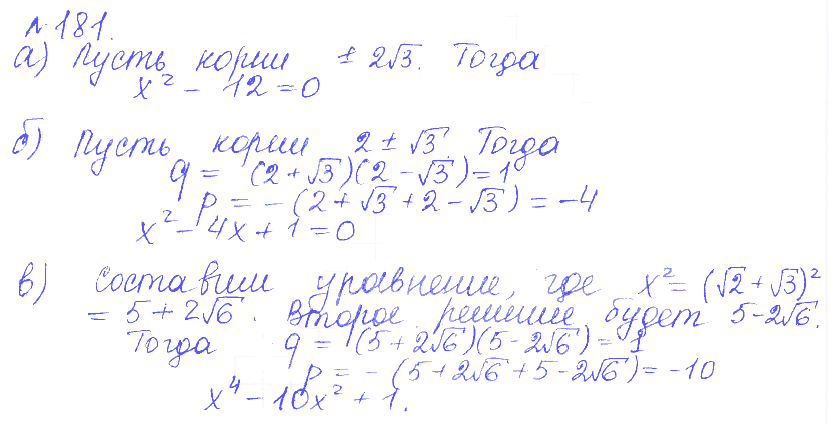 №181.
а) Пусть корни ± 2√3. Тогда
x² – 12 = 0
б) Пусть корни 2 ± √3. Тогда
q = (2 + √3)(2 – √3) = 1
p = – (2 + √3 + 2 – √3) = –4
x² – 4x + 1 = 0
в) Составим уравнение, где x² = (√2 + √3)²
= 5 + 2√6. Второе решение будет 5–2√6.
Тогда q = (5 + 2√6)(5 – 2√6) = 1
p = – (5 + 2√6 + 5 – 2√6) = –10
x⁴ – 10x² + 1.